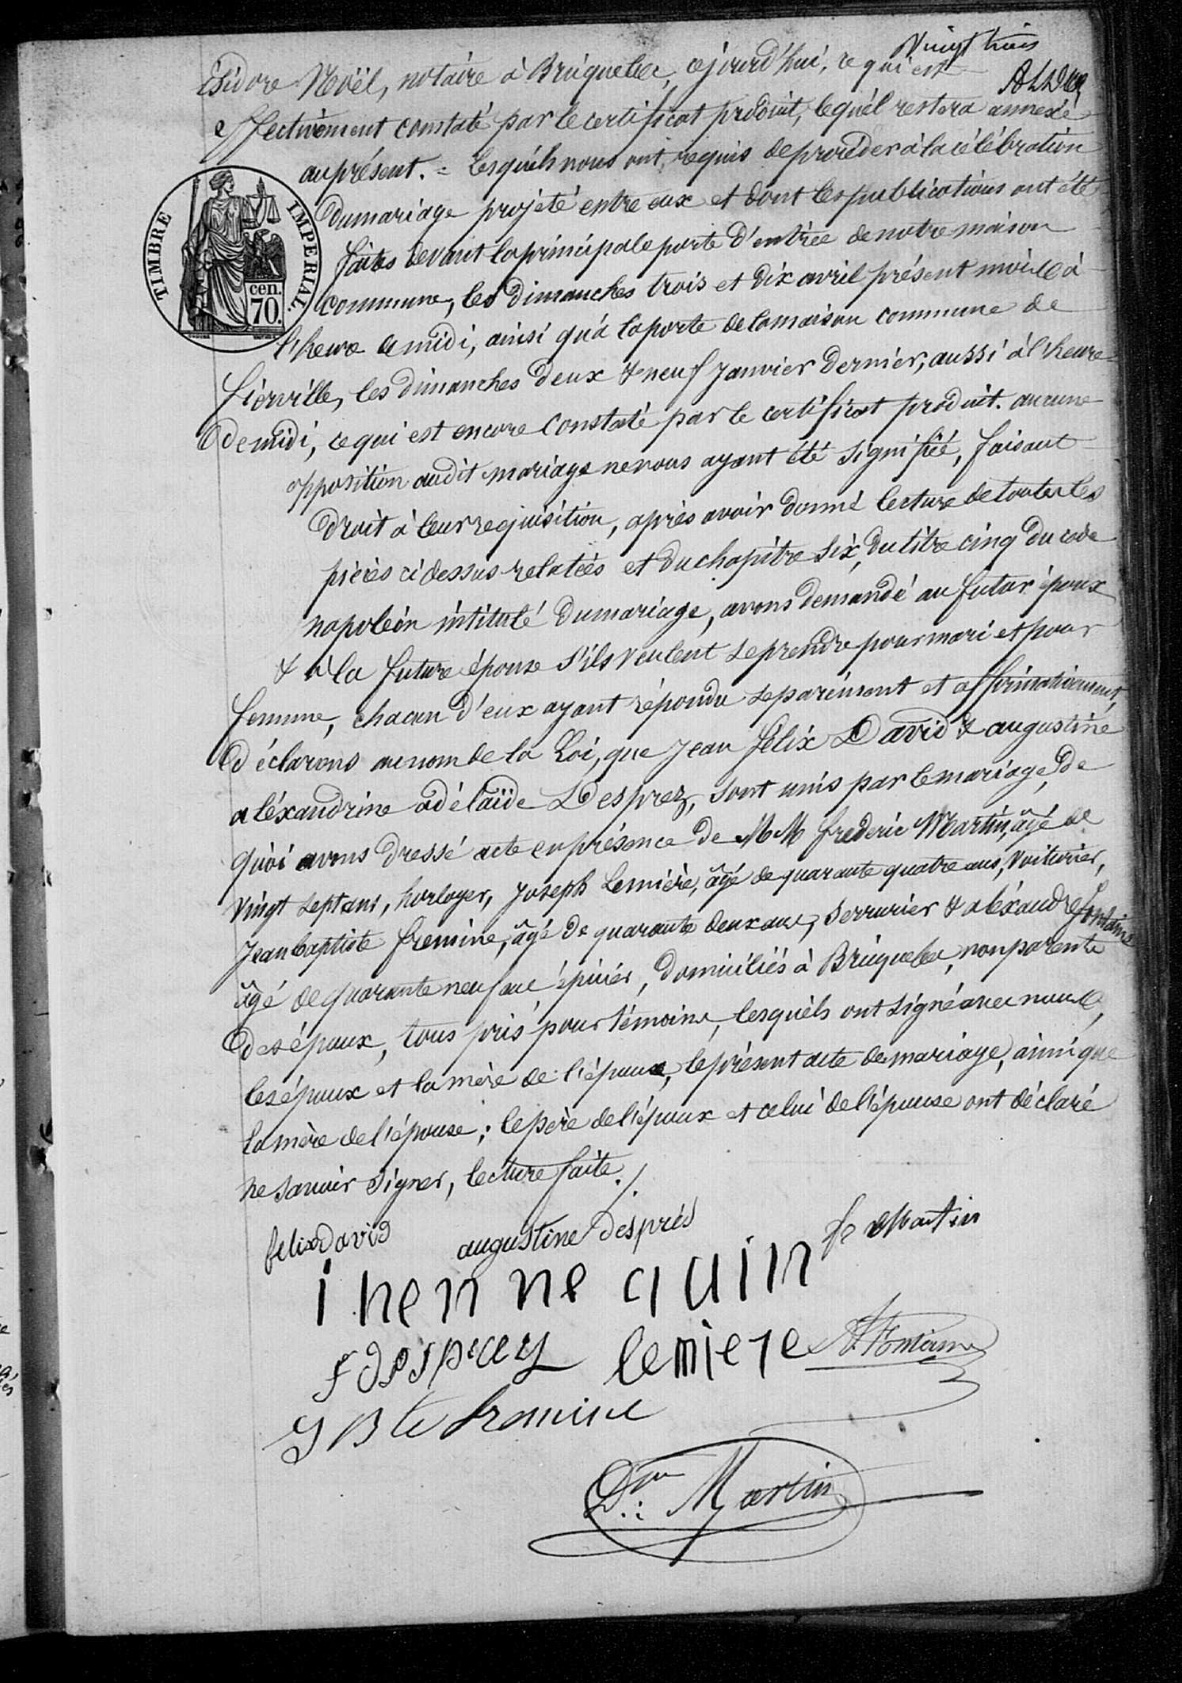 Vingt trois
isidore Noël, notaire à Bricquebec, cejourd'hui, ce qui est
effectivement constaté par le certificat produit, lequel restera annexé
au présent. = Lesquels nous ont requis de procéder à la célébration
du mariage projeté entre eux et dont les publications ont été
faites devant la principale porte d'entrée de notre maison
commune, les dimanches trois et dix avril présent mois à
l'heure de midi, ainsi qu'à la porte de la maison commune de
fierville, les dimanches deux & neuf janvier dernier, aussi à l'heure
de midi, ce qui est encore constaté par le certificat produit. aucune
opposition audit mariage ne nous ayant été signifié, faisant
droit à leur requisition, après avoir donné lecture de toutes les
pièces ci dessus relatées et du chapitre six, du titre cinq du code
napoléon intitulé du mariage, avons demandé au futur époux
& à la future épouse s'ils veulent se prendre pour mari et pour
femme, chacun d'eux ayant répondu séparément et affirmativement,
déclarons au nom de la Loi, que jean félix David & augustine
aléxandrine adélaïde Desprez, sont unis par le mariage, de
quoi avons dressé acte en présence de M M frederic Martin, âgé de
vingt sept ans, horloger, joseph Lemière, âgé de quarante quatre ans, voiturier,
jean baptiste fremine, âgé de quarante deux ans, serrurier & aléxandre fontaine
âgé de quarante neuf ans, épicier, domiciliés à Bricquebec, non parents
des époux, tous pris pour témoins, lesquels ont signé avec nous,
les époux et la mère de l'époux, le présent acte de mariage, ainsi que
la mère de l'épouse ; le père de l'époux et celui de l'épouse ont déclaré
ne savoir signer, lecture faite./
TIMBRE IMPERIAL.
70 cen.
felix david augustine després fe Martin
i hennequin
lemiere A Fontaine
J B te fremine
Martin